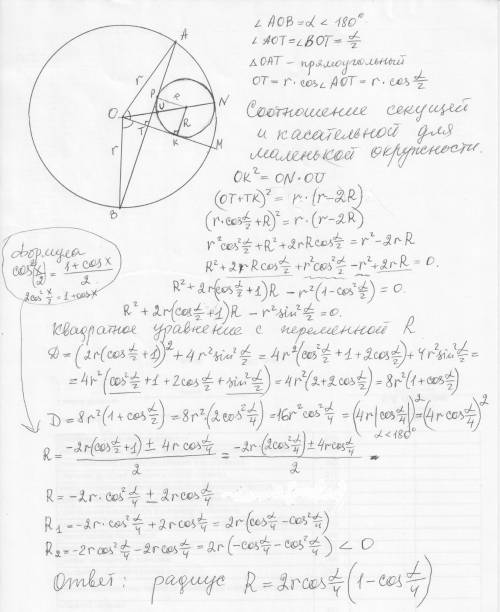 A
r
P
e
N
O
U
R
T
K
M
r
B
∠AOB = α < 180°.
∠AOT = ∠BOT = α/2
△OAT – прямоугольный
OT = r·cos∠AOT = r·cos α/2
Соотношение секущей
и касательной для
маленькой окружности.
OK² = ON·OU
(OT+TK)² = r·(r-2R)
(r·cos α/2 + R)² = r·(r-2R)
r²cos² α/2 + R² + 2rR cos α/2 = r² - 2rR
R² + 2rR cos α/2 + r²cos² α/2 - r² + 2rR = 0.
R² + 2r(cos α/2 + 1)R - r²(1 - cos² α/2) = 0.
R² + 2r(cos α/2 + 1)R - r² sin² α/2 = 0.
формула
cos²(x/2) = (1+cosx)/2
2cos² x/2 = 1+cosx
Квадратное уравнение с переменной R
D = (2r(cos α/2 + 1))² + 4r² sin² α/2 = 4r²(cos² α/2 + 1 + 2cos α/2) + 4r² sin² α/2 =
= 4r²(cos² α/2 + 1 + 2cos α/2 + sin² α/2) = 4r²(2 + 2cos α/2) = 8r²(1 + cos α/2)
D = 8r²(1 + cos α/2) = 8r²·(2cos² α/4) = 16r² cos² α/4 = (4r|cos α/4|)² = (4r cos α/4)²
α < 180°
R = (-2r(cos α/2 + 1) ± 4r cos α/4)/2 = (-2r·(2cos² α/4) ± 4r cos α/4)/2 =
R = -2r·cos² α/4 ± 2r cos α/4
R₁ = -2r·cos² α/4 + 2r cos α/4 = 2r(cos α/4 - cos² α/4)
R₂ = -2r cos² α/4 - 2r cos α/4 = 2r(-cos α/4 - cos² α/4) < 0
Ответ: радиус R = 2r cos α/4 (1 - cos α/4)